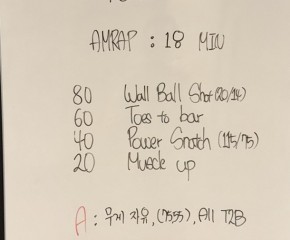 AMRAP : 18 MIN
80 Wall Ball Shot (20/14)
60 Toes to bar
40 Power Snatch (115/75)
20 Muscle up
A : 무게 자유, (75 55), All T2B